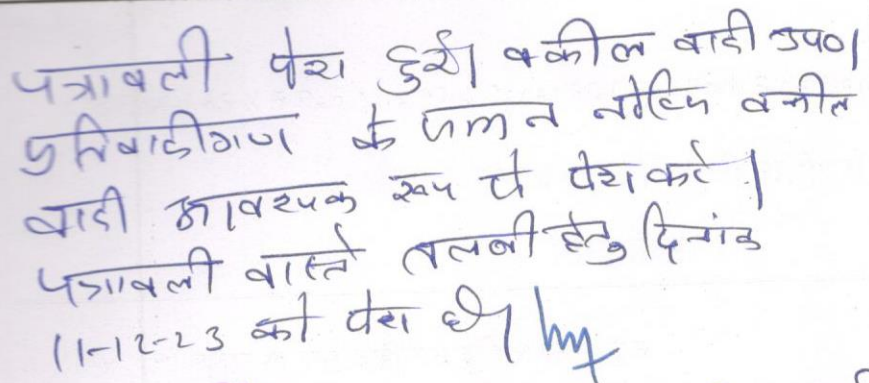 पत्रावली पेश हुई। वकील वादी उप०।
प्रतिवादीगण के तलब नोटिस वकील
वादी आवश्यक रूप से पेश करे।
पत्रावली वास्ते तलबी हेतु दिनांक
11-12-23 को पेश हो।